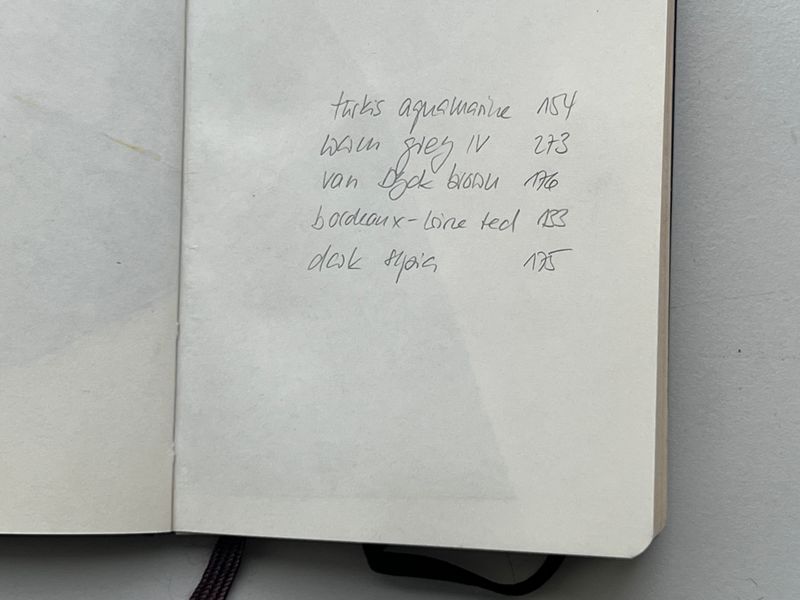 türkis aquamarine 154
warm grey IV 273
van Dyck brown 176
bordeaux-wine red 133
dark sepia 175